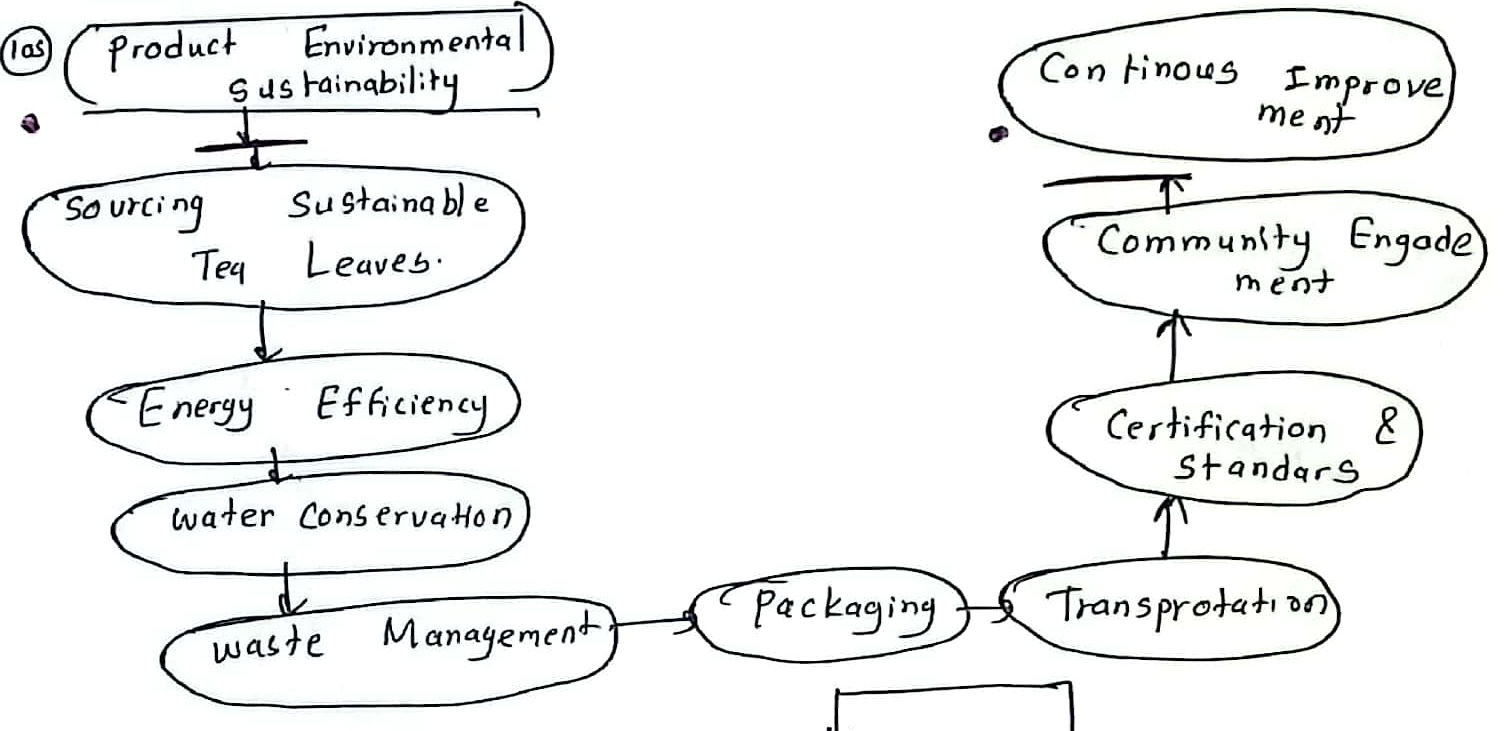 10s
Product Environmental
sustainability
Sourcing Sustainable
Tea Leaves.
Energy Efficiency
water Conservation
waste Management
Packaging
Transprotation
Certification &
Standars
Community Engade
ment
Continous Improve
ment